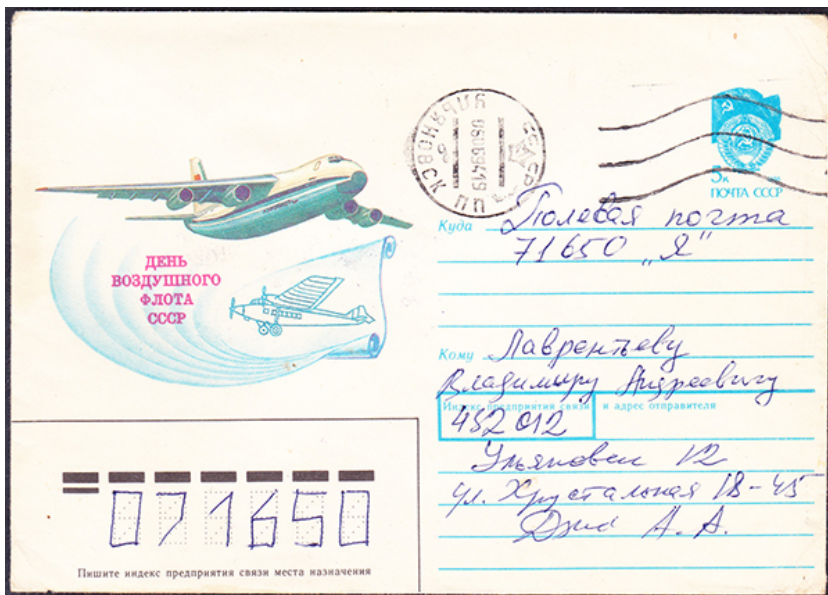 ДЕНЬ
ВОЗДУШНОГО
ФЛОТА
СССР
УЛЬЯНОВСК ПП
СССР
5к
ПОЧТА СССР
Куда Полевая почта
71650 „Я"
Кому Лаврентьеву
Владимиру Андреевичу
Индекс предприятия связи и адрес отправителя
432012
Ульяновск 12
ул. Хрустальная 18-45
А. А.
071650
Пишите индекс предприятия связи места назначения